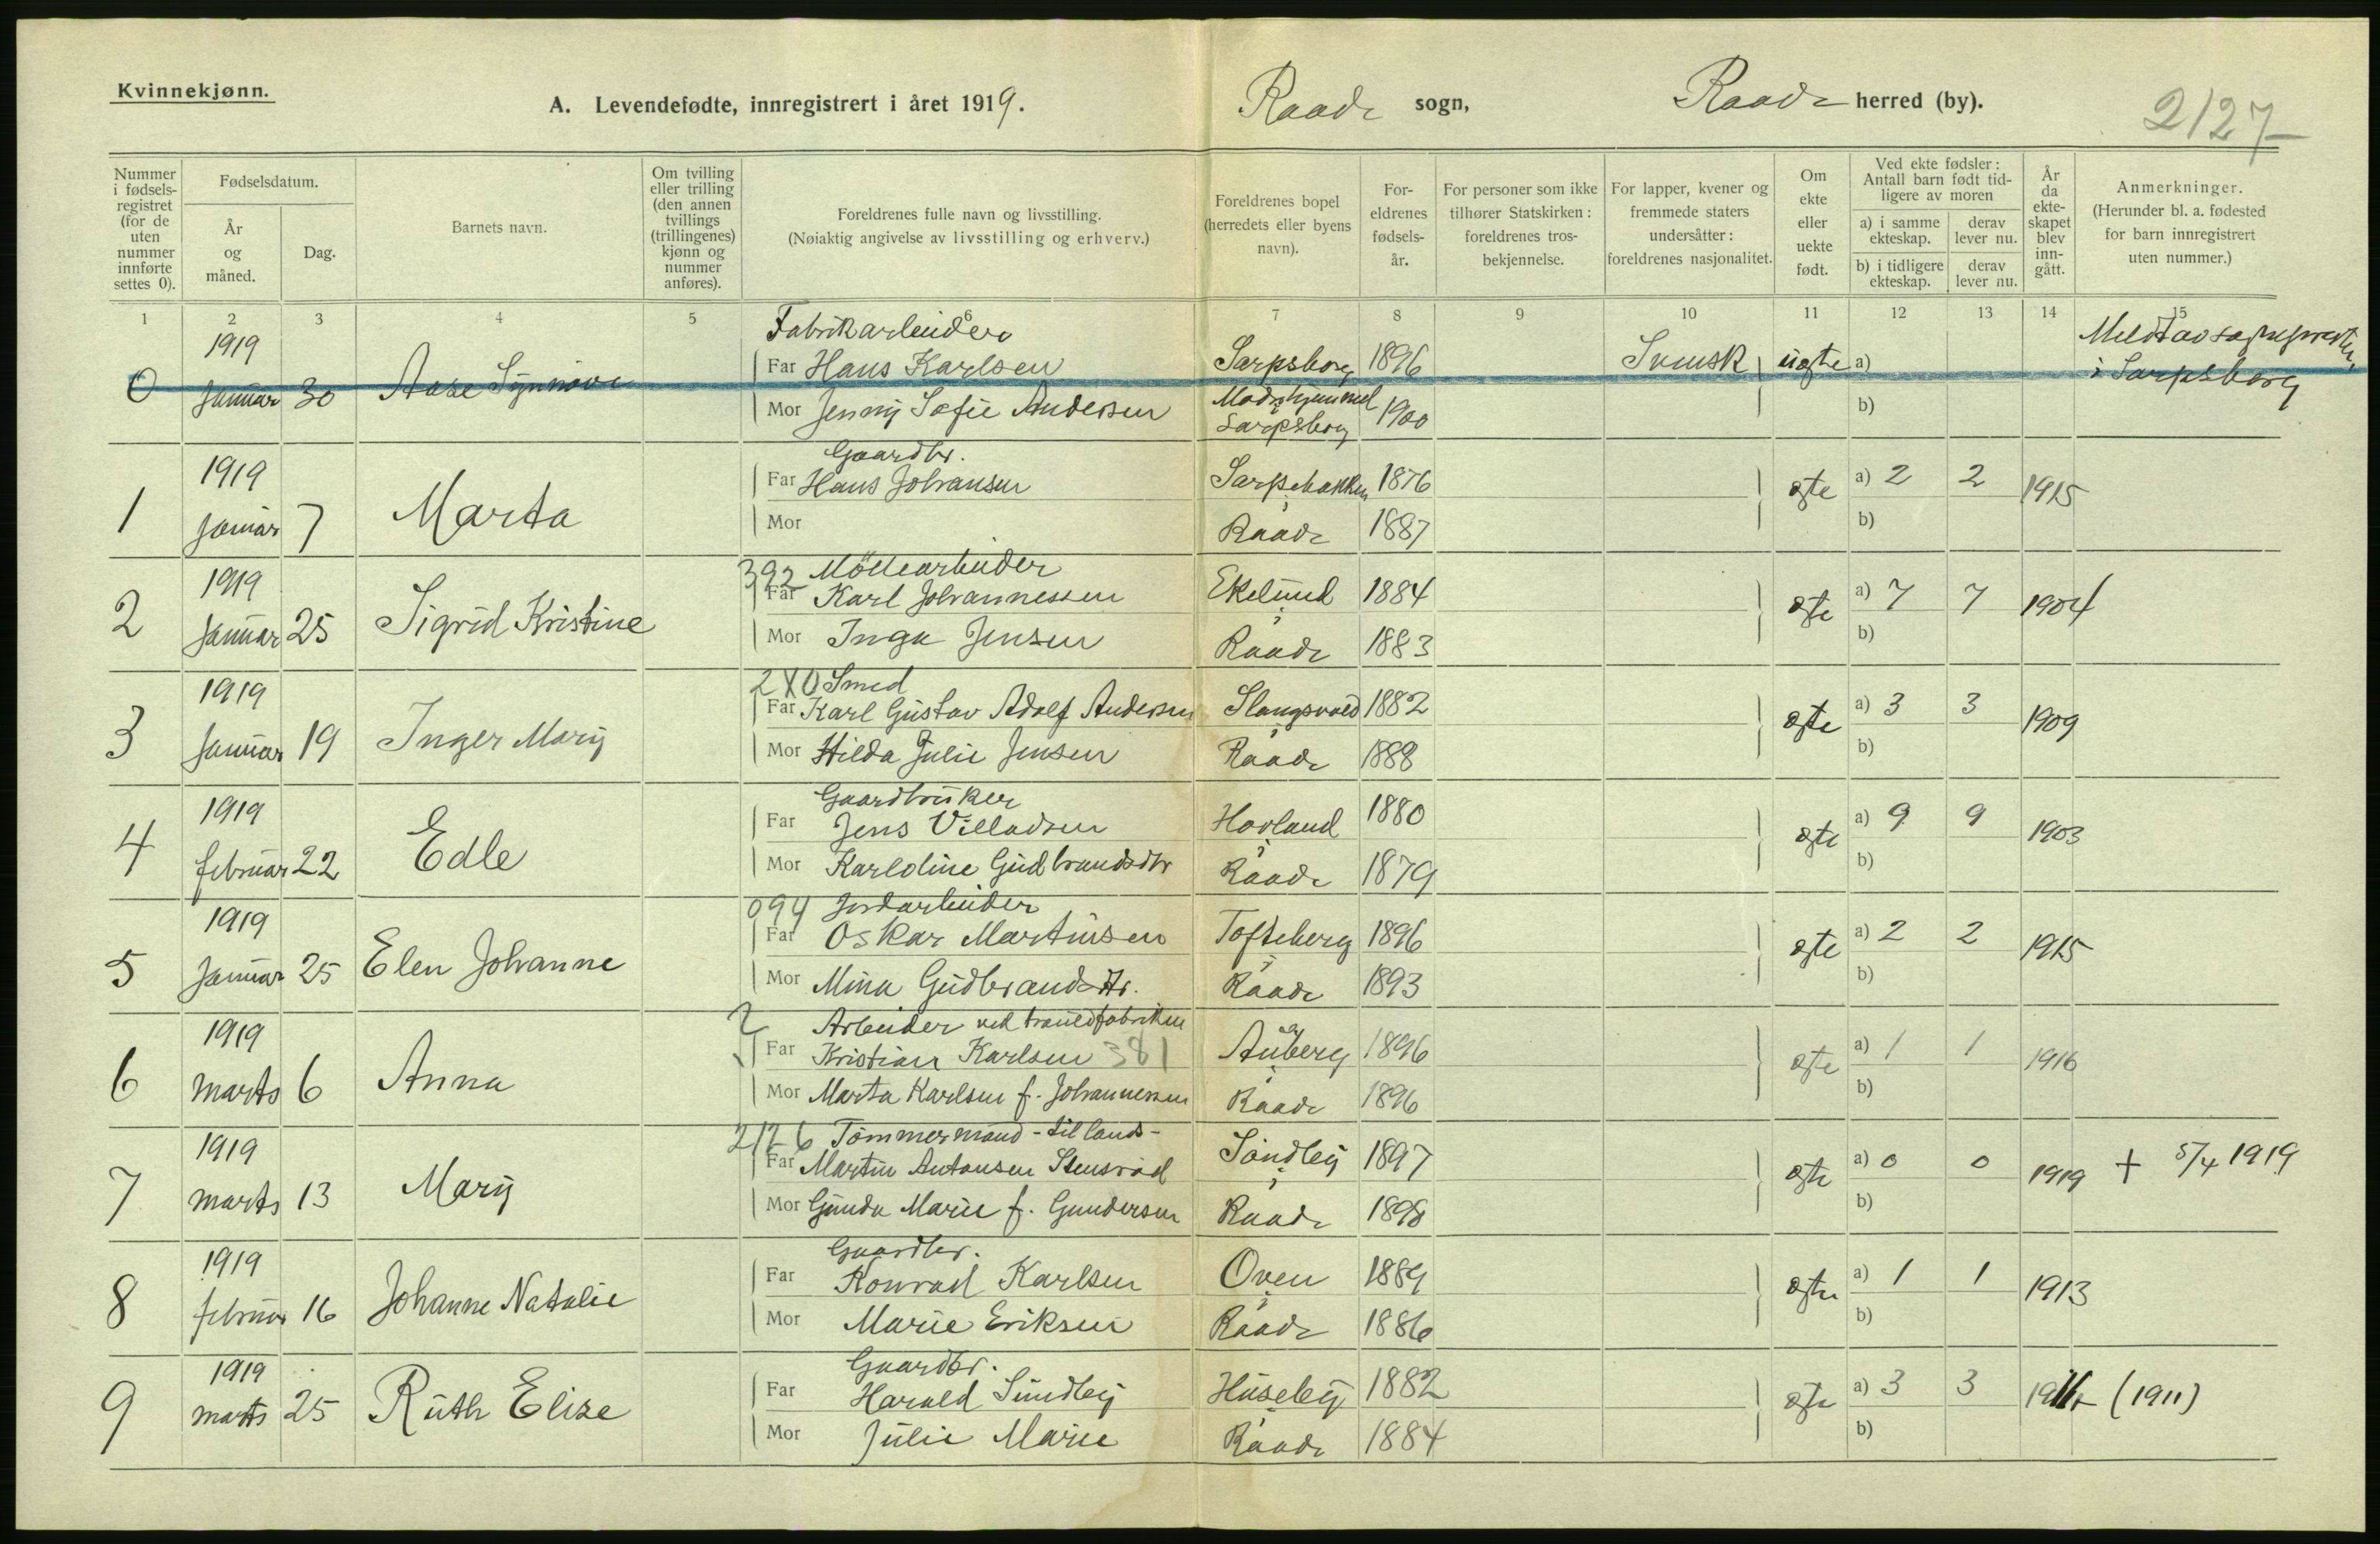 Kvinnekjønn.
A. Levendefødte, innregistrert i året 1919.
Raade sogn,
Raade herred (by).
2127
Nummer i fødsels-registret (for de uten nummer innførte settes 0).
Fødselsdatum.
År og måned.
Dag.
Barnets navn.
Om tvilling eller trilling (den annen tvillings (trillingenes) kjønn og nummer anføres).
Foreldrenes fulle navn og livsstilling.
(Nøiaktig angivelse av livsstilling og erhverv.)
Foreldrenes bopel (herredets eller byens navn).
For-eldrenes fødsels-år.
For personer som ikke tilhører Statskirken: foreldrenes tros-bekjennelse.
For lapper, kvener og fremmede staters undersåtter: foreldrenes nasjonalitet.
Om ekte eller uekte født.
Ved ekte fødsler: Antall barn født tid-ligere av moren
a) i samme ekteskap.
derav lever nu.
b) i tidligere ekteskap.
derav lever nu.
År da ekte-skapet blev inn-gått.
Anmerkninger.
(Herunder bl. a. fødested for barn innregistrert uten nummer.)
1 2 3 4 5 6 7 8 9 10 11 12 13 14 15
Fabrikarbeider
1919 Far Hans Karlsen Sarpsborg 1896 Svensk uægte a)
0 Januar 30 Aase Synnøve
Mor Jenny Sofie Andersen Sarpsborg 1900 b)
i Sarpsborg
Gaardbr.
1919 Far Hans Johansen Sarpebakken 1876 ægte a) 2 2 1915
1 Januar 7 Marta Mor Raade 1887 b)
392 Möllearbeider
1919 Far Karl Johannessen Ekelund 1884 ægte a) 7 7 1904
2 Januar 25 Sigrid Kristine Mor Inga Jensen Raade 1883 b)
240 Smed
1919 Far Karl Gustav Adolf Andersen Slangsvold 1882 ægte a) 3 3 1909
3 Januar 19 Inger Mary Mor Hilda Julie Jensen Raade 1888 b)
Gaardbruker
1919 Far Jens Villadsen Hovland 1880 ægte a) 9 9 1903
4 februar 22 Edle Mor Karloline Gudbrandsdtr Raade 1879 b)
094 Jordarbeider
1919 Far Oskar Martinsen Tofteberg 1896 ægte a) 2 2 1915
5 Januar 25 Elen Johanne Mor Mina Gudbrandsdtr. Raade 1893 b)
2 Arbeider ved trauldfabriken
1919 Far Kristian Karlsen 381 Auberg 1896 ægte a) 1 1 1916
6 marts 6 Anna Mor Marta Karlsen f. Johannessen Raade 1896 b)
2126 Tömmermand - til lands -
1919 Far Martin Antonsen Stensrød Sundby 1897 ægte a) 0 0 1919 + 5/4 1919
7 marts 13 Mary Mor Gunda Marie f. Gundersen Raade 1898 b)
Gaardbr.
1919 Far Konrad Karlsen Oven 1889 ægte a) 1 1 1913
8 februar 16 Johanne Natalie Mor Marie Eriksen Raade 1886 b)
Gaardbr.
1919 Far Harald Sundby Huseby 1882 ægte a) 3 3 1911 (1911)
9 marts 25 Ruth Elise Mor Julie Marie Raade 1884 b)